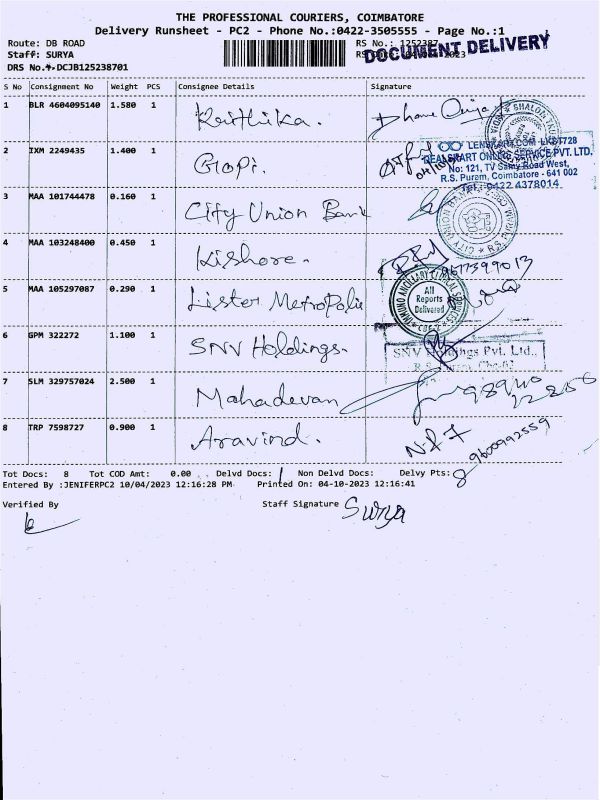 THE PROFESSIONAL COURIERS, COIMBATORE
Delivery Runsheet - PC2 - Phone No.:0422-3505555 - Page No.:1
Route: DB ROAD RS No.: 1252387
DOCUMENT DELIVERY
Staff: SURYA
DRS No.:DCJB125238701
S No Consignment No Weight PCS Consignee Details Signature
1 BLR 4604095140 1.580 1 Keithika.
SHALOM
2 IXM 2249435 1.400 1 Gopi.
LENSKART.COM LKST728
DEALSKART ONLINE SERVICE PVT. LTD.
No: 121, TV Samy Road West,
R.S. Puram, Coimbatore - 641 002
Tel : 0422 4378014
3 MAA 101744478 0.160 1 City Union Bank
4 MAA 103248400 0.450 1 Kishore.
9677399013
5 MAA 105297087 0.290 1 Lister Metropolis
All
Reports
Delivered
CBE-2
6 GPM 322272 1.100 1 SNV Holdings.
SNV Holdings Pvt. Ltd.,
7 SLM 329757024 2.500 1 Mahadevan
8 TRP 7598727 0.900 1 Aravind.
9600992559
Tot Docs: 8 Tot COD Amt: 0.00 Delvd Docs: Non Delvd Docs: Delvy Pts: 8
Entered By :JENIFERPC2 10/04/2023 12:16:28 PM Printed On: 04-10-2023 12:16:41
Verified By Staff Signature Surya